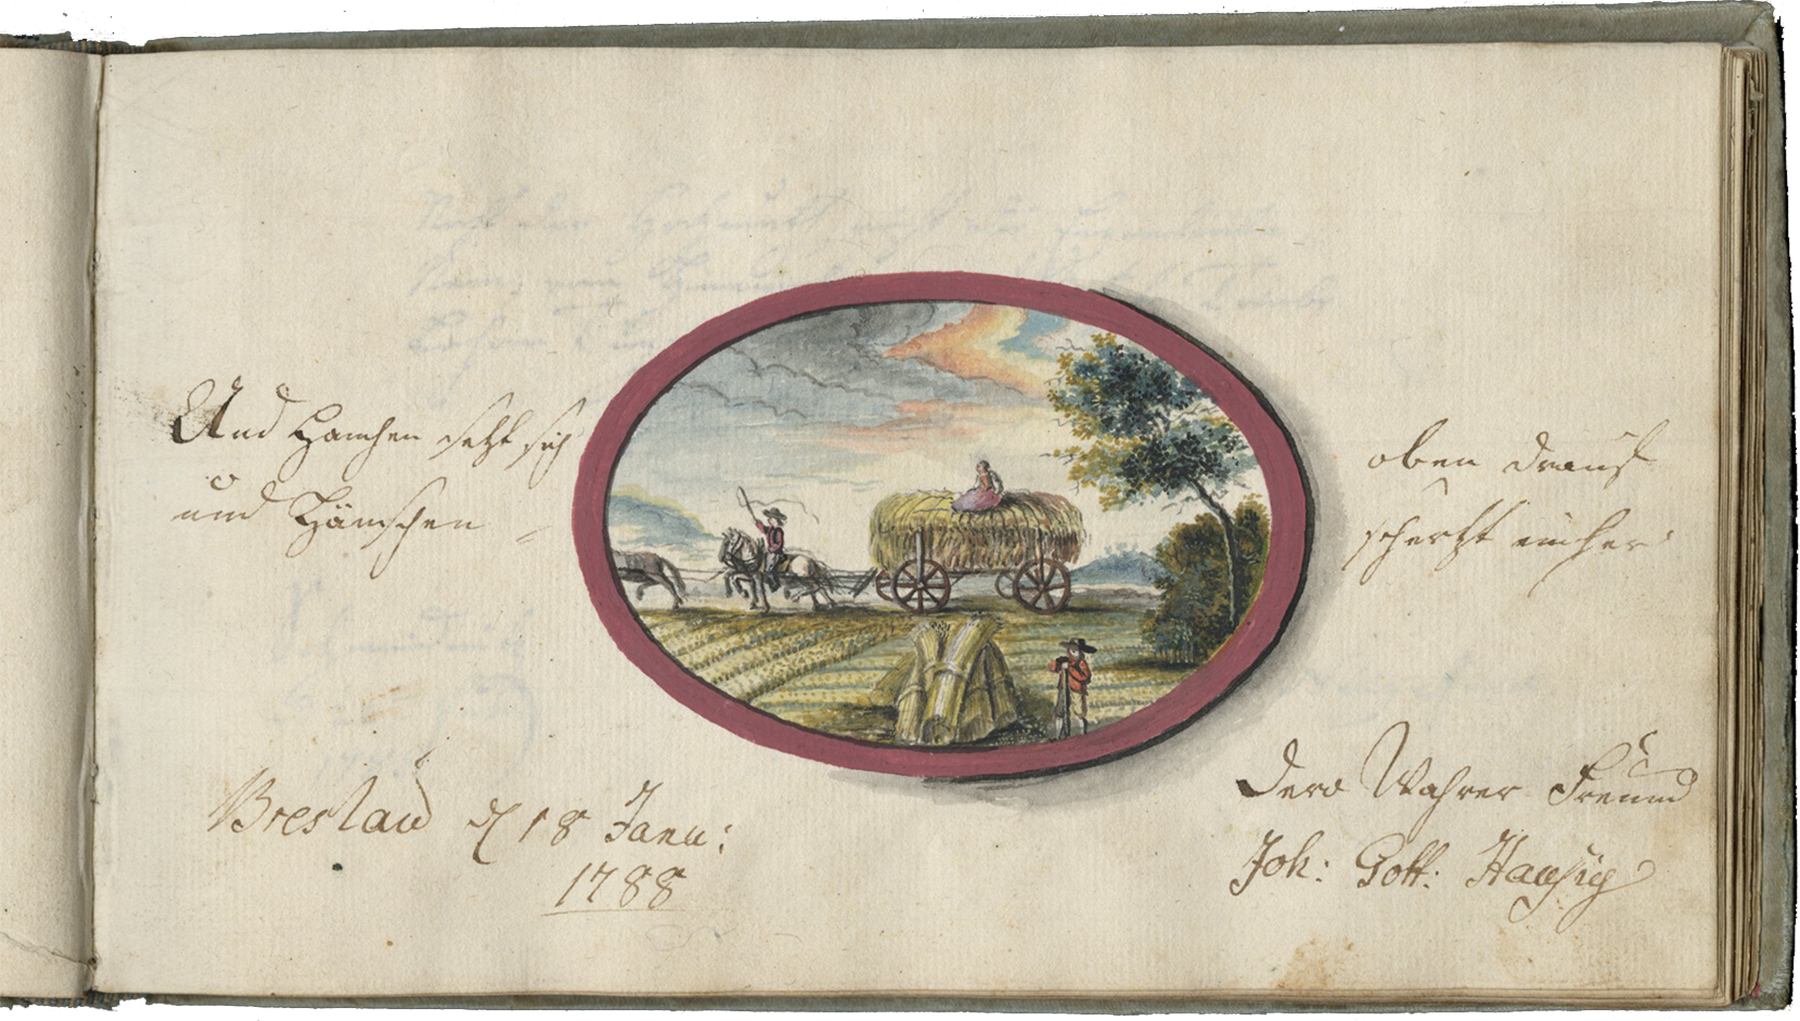 Und Hannchen setzt sich oben drauf
und Hännschen schertzt umher
Breslau d 18 Janu:
1788
Dero Wahrer Freund
Joh: Gott: Hausig